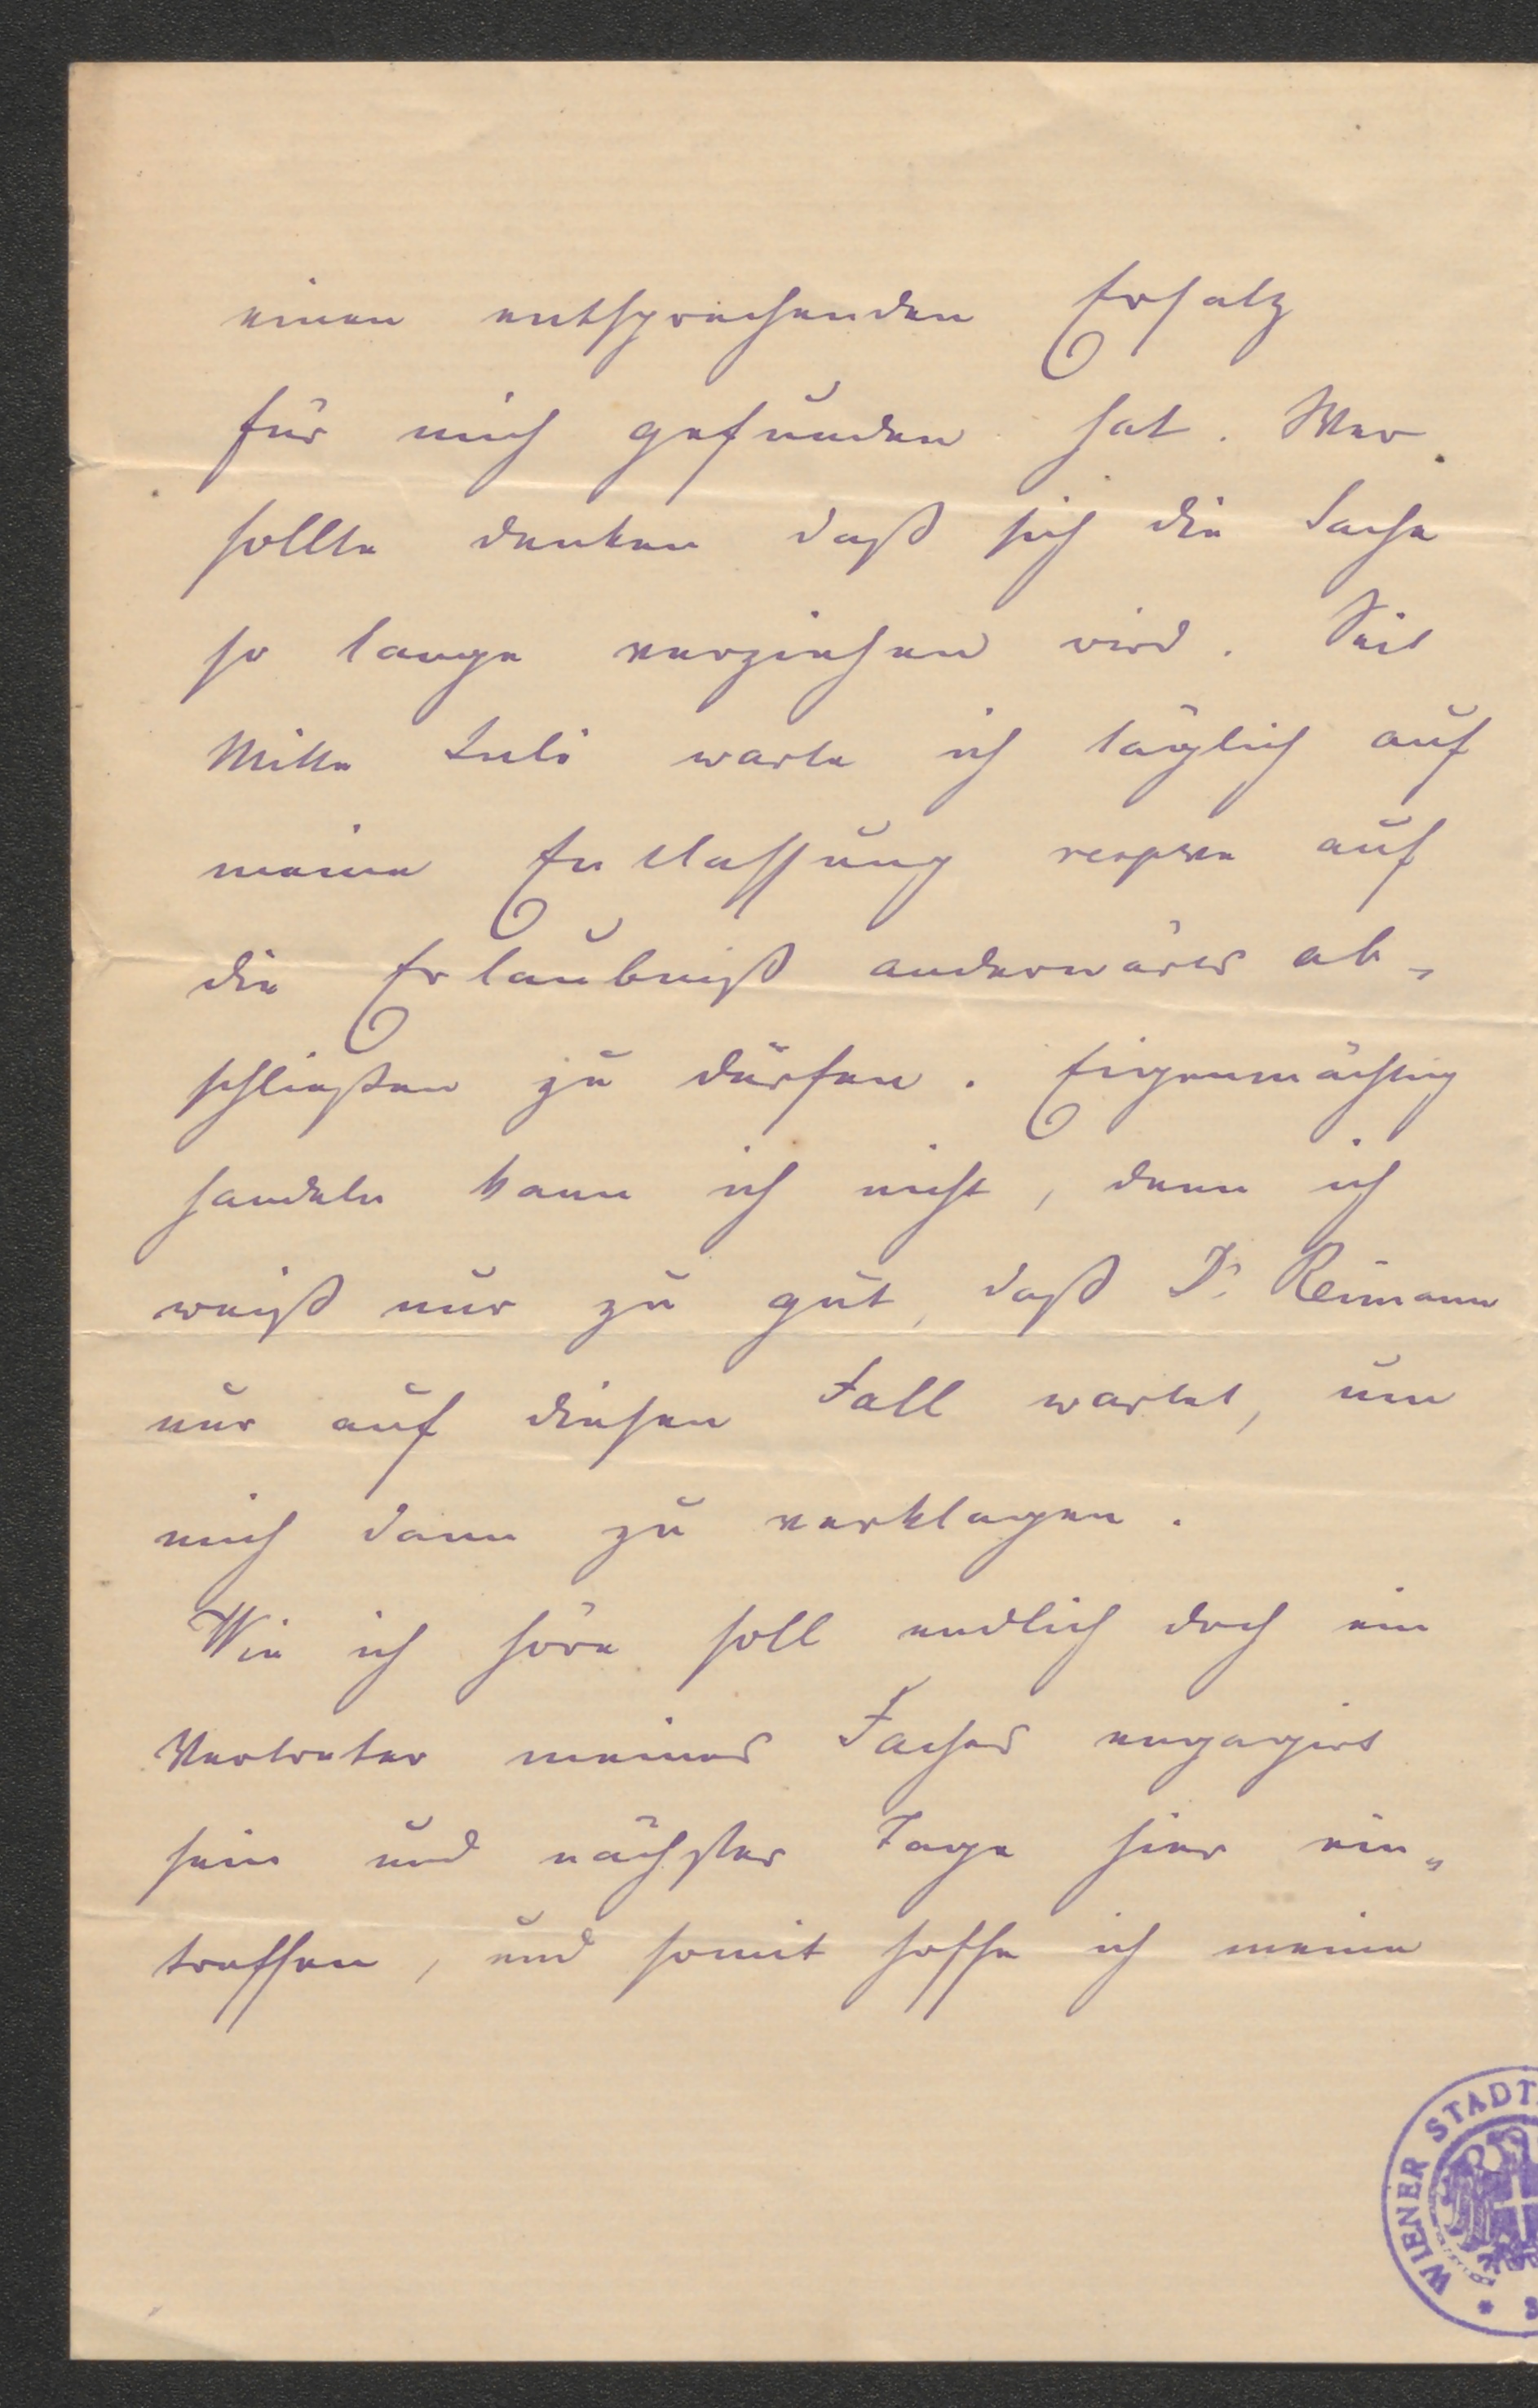 einen entsprechenden Ersatz
für mich gefunden hat. Wer
sollte denken daß sich die Sache
so lange verziehen wird. Seit
Mitte Juli warte ich täglich auf
meine Entlassung respve auf
die Erlaubniß anderwärts ab-
schließen zu dürfen. Eigenmächtig
handeln kann ich nicht, denn ich
weiß nur zu gut, daß Dr Reimann
nur auf diesen Fall wartet, um
mich dann zu verklagen.
Wie ich höre soll endlich doch ein
Vertreter meines Faches engagirt
sein und nächster Tage hier ein-
treffen, und somit hoffe ich meine
WIENER STADT